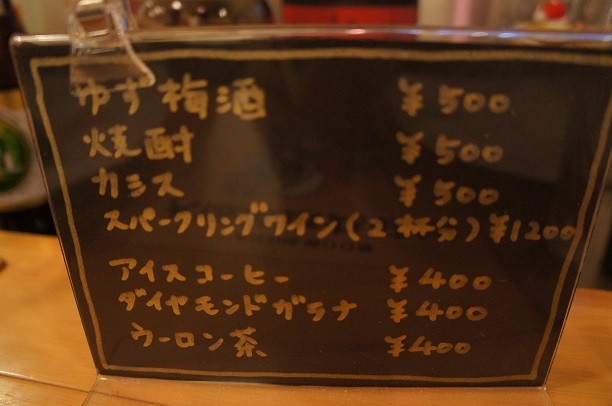 ゆず梅酒 ¥500
焼酎 ¥500
カシス ¥500
スパークリングワイン(2杯分) ¥1200
アイスコーヒー ¥400
ダイヤモンドガラナ ¥400
ウーロン茶 ¥400